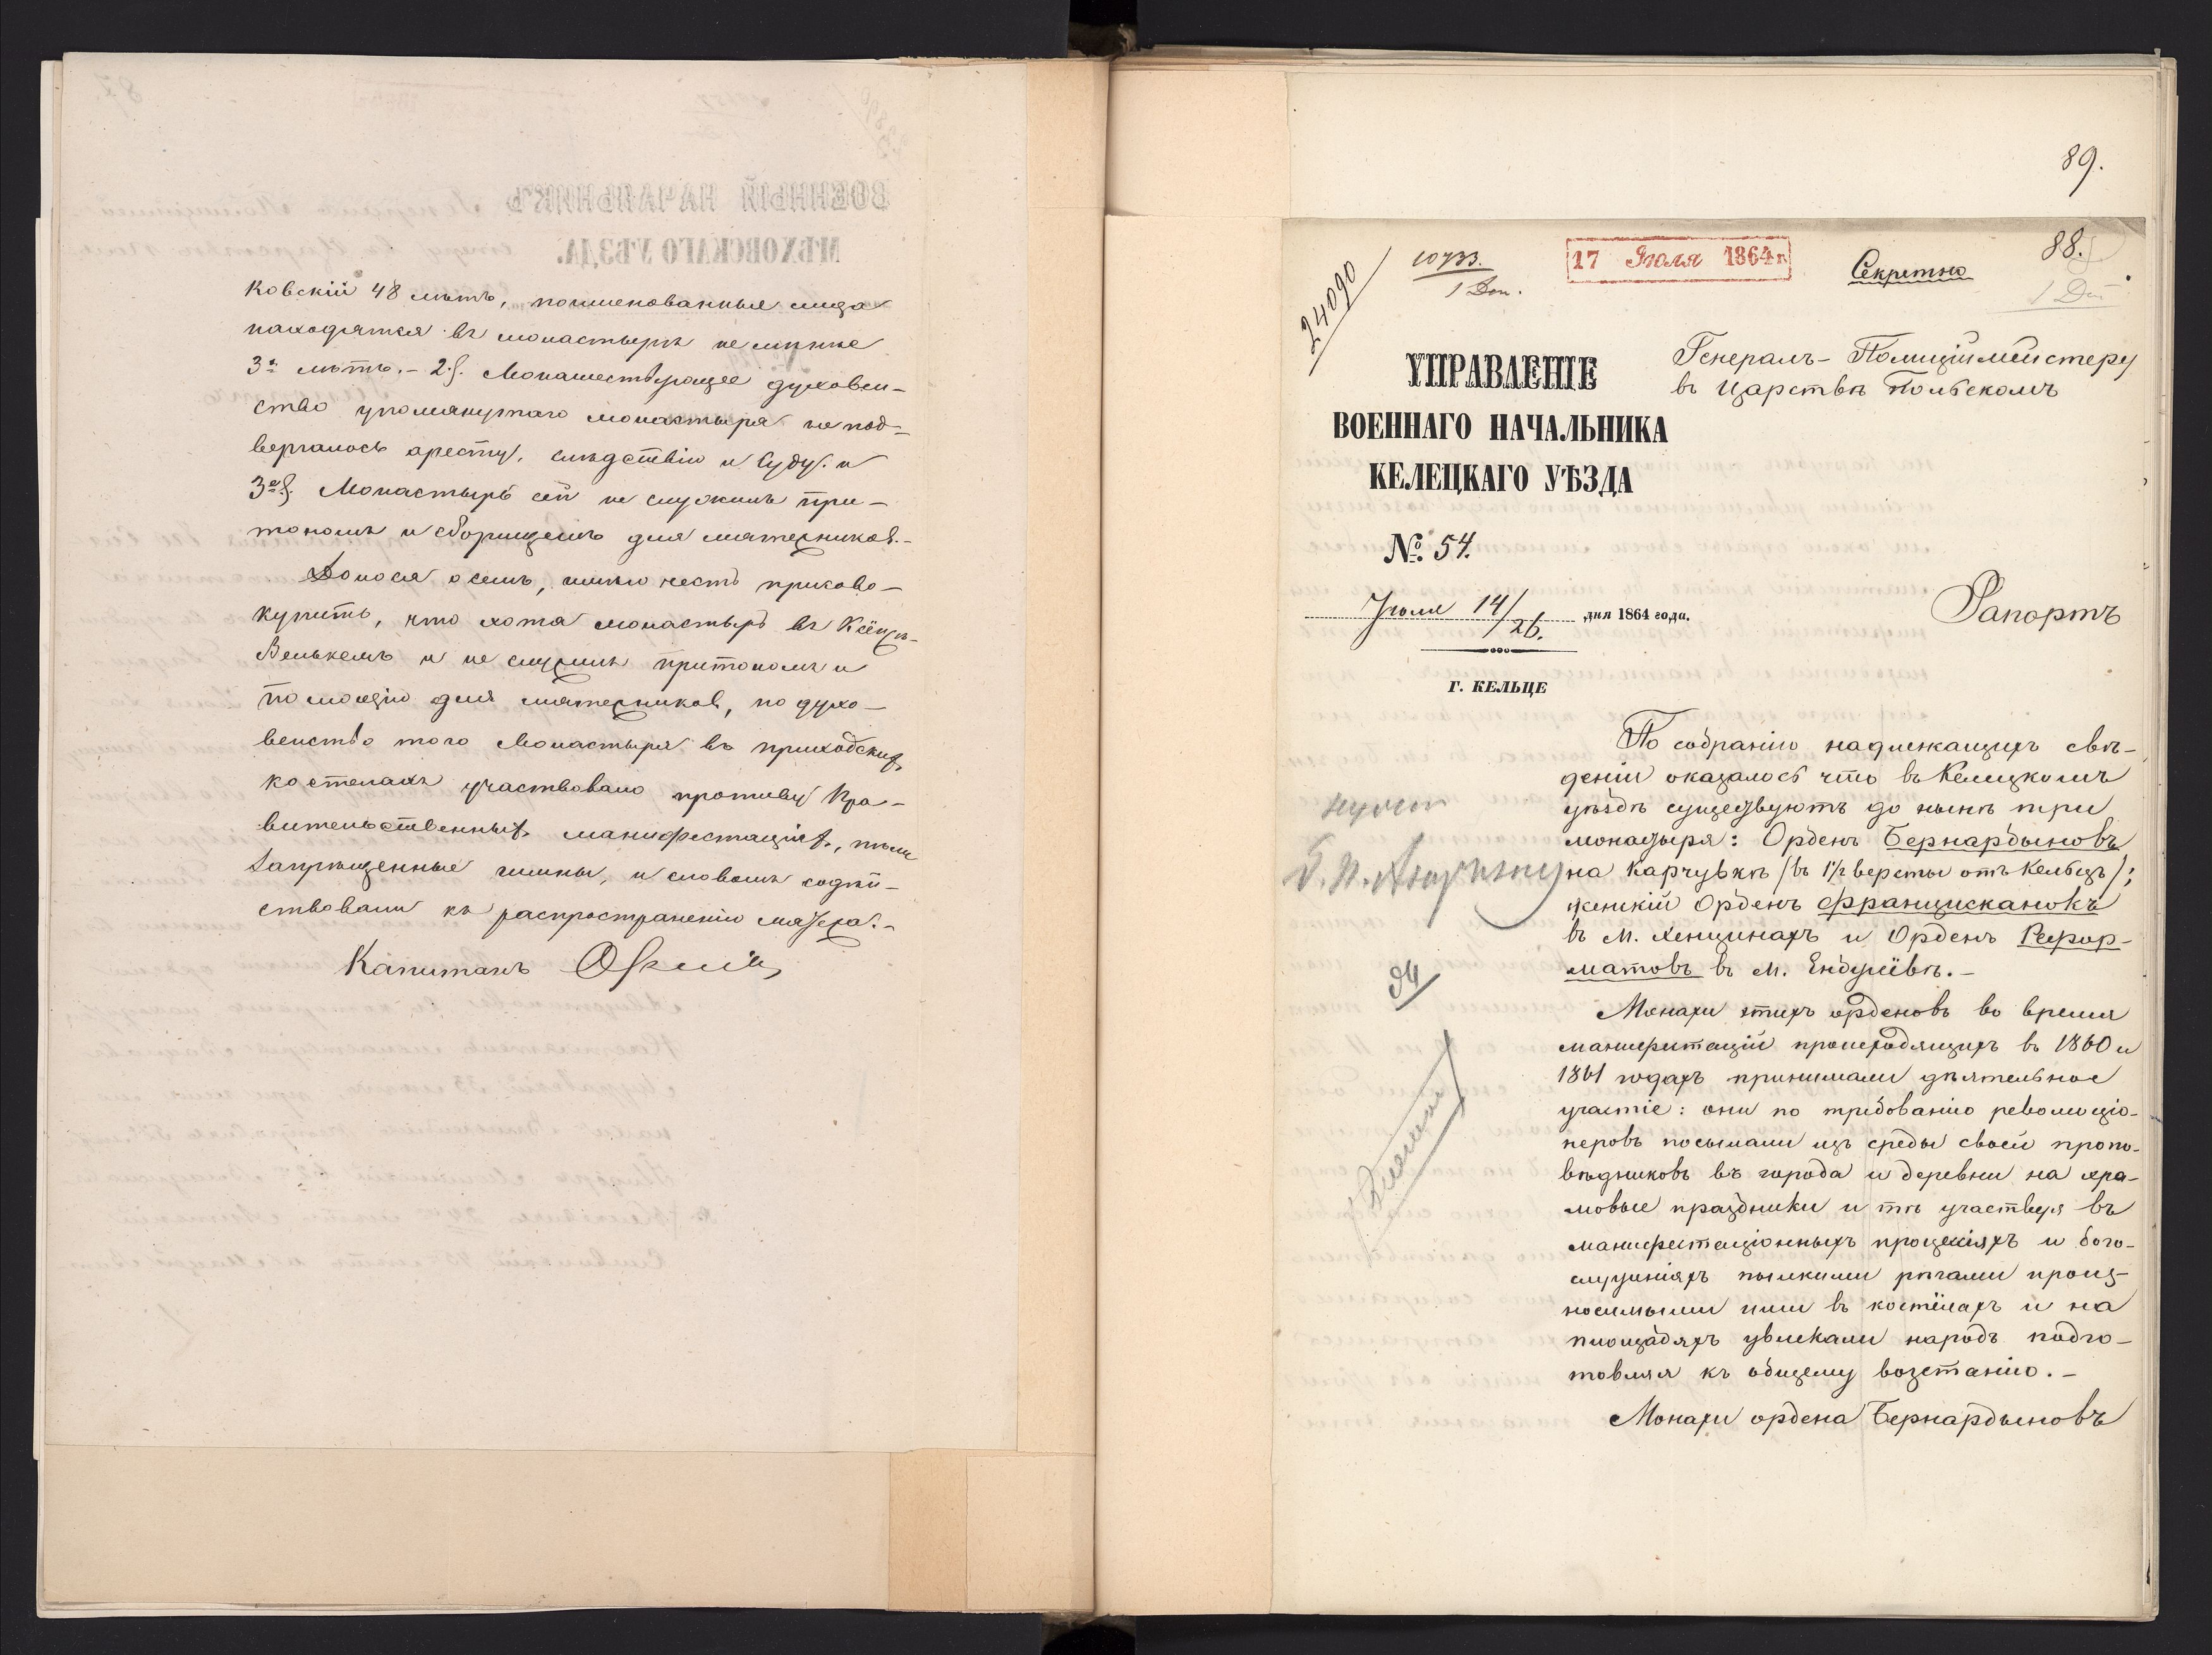 ковскій 48 лѣтъ, поименованныя лица
находятся въ монастырѣ не менѣе
3х лѣтъ. - 2.§. Монашествующее духовен-
ство упомянутаго монастыря не под-
вергалось аресту, слѣдствію и суду. и
3е§. Монастырь сей не служилъ при-
тономъ и сборищемъ для мятежниковъ.-
Донося о семъ, имѣю честь присово-
купить, что хотя монастырь въ Ксёнжъ-
Велькемъ и не служилъ притономъ и
помощію для мятежниковъ, но духо-
венство того Монастыря въ приходскихъ
костелахъ участвовало противу Пра-
вительственныхъ манифестаціяхъ, пѣли
запрещенные гимны, и словомъ содѣй-
ствовали къ распространенію мятежа.-
Капитанъ
89.
24090
10733.
1 Дѣл.
17 Іюля 1864 г.
Секретно
88.
УПРАВЛЕНІЕ
ВОЕННАГО НАЧАЛЬНИКА
КЕЛЕЦКАГО УѢЗДА
№ 54.
Іюля 14/26. дня 1864 года.
Г. КЕЛЬЦЕ
Генералъ-Полиціймейстеру
въ Царствѣ Польскомъ
Рапортъ
По собранію надлежащихъ свѣ-
деній оказалось что въ Келецкомъ
уѣздѣ существуютъ до нынѣ три
монастыря: Орденъ Бернардыновъ
на Карчувкѣ /въ 1½ версты отъ Кельцъ/;
женскій Орденъ Францисканокъ
въ М. Хенцинахъ и Орденъ Рефор-
матовъ въ М. Ендржіёвѣ.-
94
Монахи этихъ орденовъ во время
манифестацій происходящихъ въ 1860 и
1861 годахъ принимали дѣятельное
участіе: они по требованію революціо-
неровъ посылали изъ среды своей пропо-
вѣдниковъ въ города и деревни на хра-
мовые праздники и тѣ участвуя въ
манифестаціонныхъ процессіяхъ и бого-
служеніяхъ пылкими рѣчами произ-
носимыми ими въ костёлахъ и на
площадяхъ увлекали народъ подго-
товляя къ общему возстанію.-
Монахи ордена Бернардыновъ